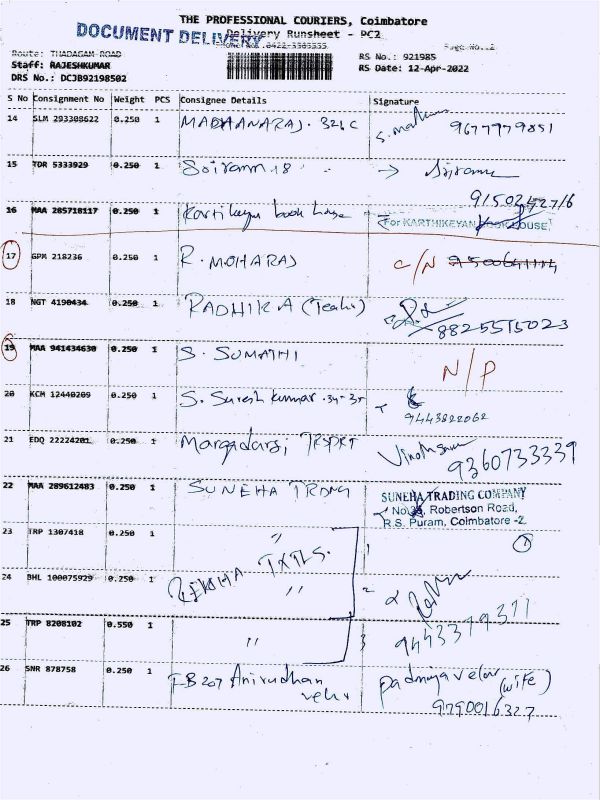 THE PROFESSIONAL COURIERS, Coimbatore
DOCUMENT DELIVERY
Delivery Runsheet - PC2
Phone No.0422-3505555
Page No.:2
Route: THADAGAM ROAD
RS No.: 921985
Staff: RAJESHKUMAR
RS Date: 12-Apr-2022
DRS No.: DCJB92198502
S No Consignment No Weight PCS Consignee Details Signature
14 SLM 293308622 0.250 1 MADHANARAJ. 326C 9677979851
15 TDR 5333929 0.250 1 Sriram 18 → Sriram
9150242716
16 MAA 285718117 0.250 1 Kartikeyan book house For KARTHIKEYAN BOOK HOUSE,
17 GPM 218236 0.250 1 R. MOHARAJ C/N
18 NGT 4190434 0.250 1 RADHIKA 8825515023
19 MAA 941434630 0.250 1 S. SUMATHI N/P
20 KCM 12440209 0.250 1 S. Suresh kumar. 34-35 9443822062
21 EDQ 22224201 0.250 1 Margadarsi TRSPRT 9360733339
22 MAA 289612483 0.250 1 SUNEHA TRDNG SUNEHA TRADING COMPANY
Robertson Road,
R.S. Puram, Coimbatore -2.
23 TRP 1307418 0.250 1 " 1
REKHA TXTLS.
24 BHL 100075929 0.250 1 " 2
25 TRP 8208102 0.550 1 " 3 9443379377
26 SNR 878758 0.250 1 F-B207 Anirudhan velu padmjavelu (wife)
9790016327